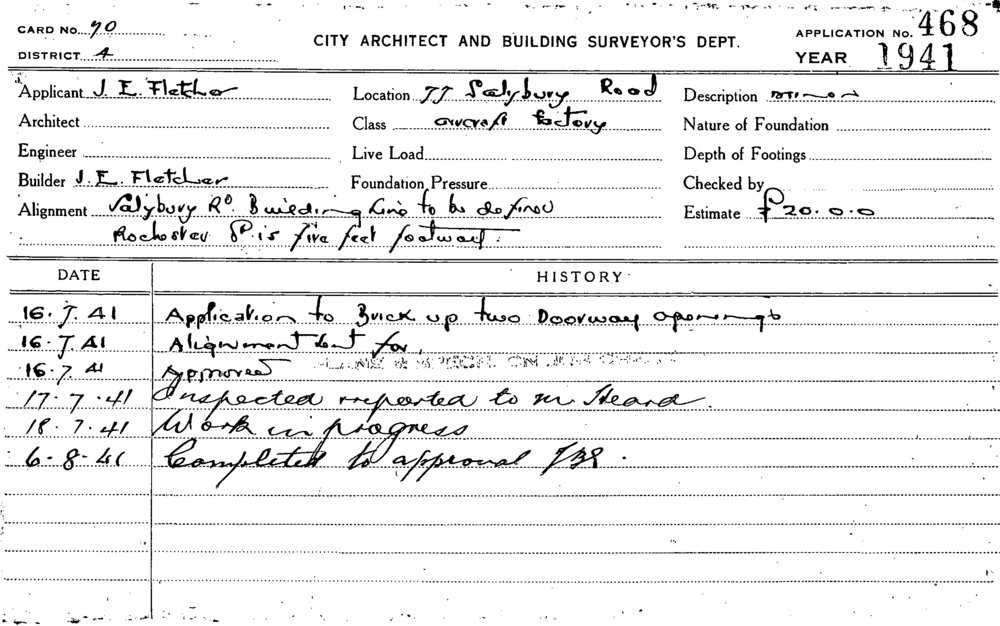 CARD NO. 90
DISTRICT 4
CITY ARCHITECT AND BUILDING SURVEYOR'S DEPT.
APPLICATION NO. 468
YEAR 1941
Applicant J. E. Fletcher
Architect
Engineer
Builder J. E. Fletcher
Alignment Salisbury Rd. Building line to be defined
Rochester St is five feet footway.
Location 77 Salisbury Road
Class aircraft factory
Live Load
Foundation Pressure
Description
Nature of Foundation
Depth of Footings
Checked by
Estimate £20.0.0
DATE HISTORY
16.7.41 Application to Brick up two Doorway openings
16.7.41 Alignment sent for
16.7.41 Approved
17.7.41 Inspected reported to Mr Heard.
18.7.41 Work in progress
6.8.41 Completed to approval